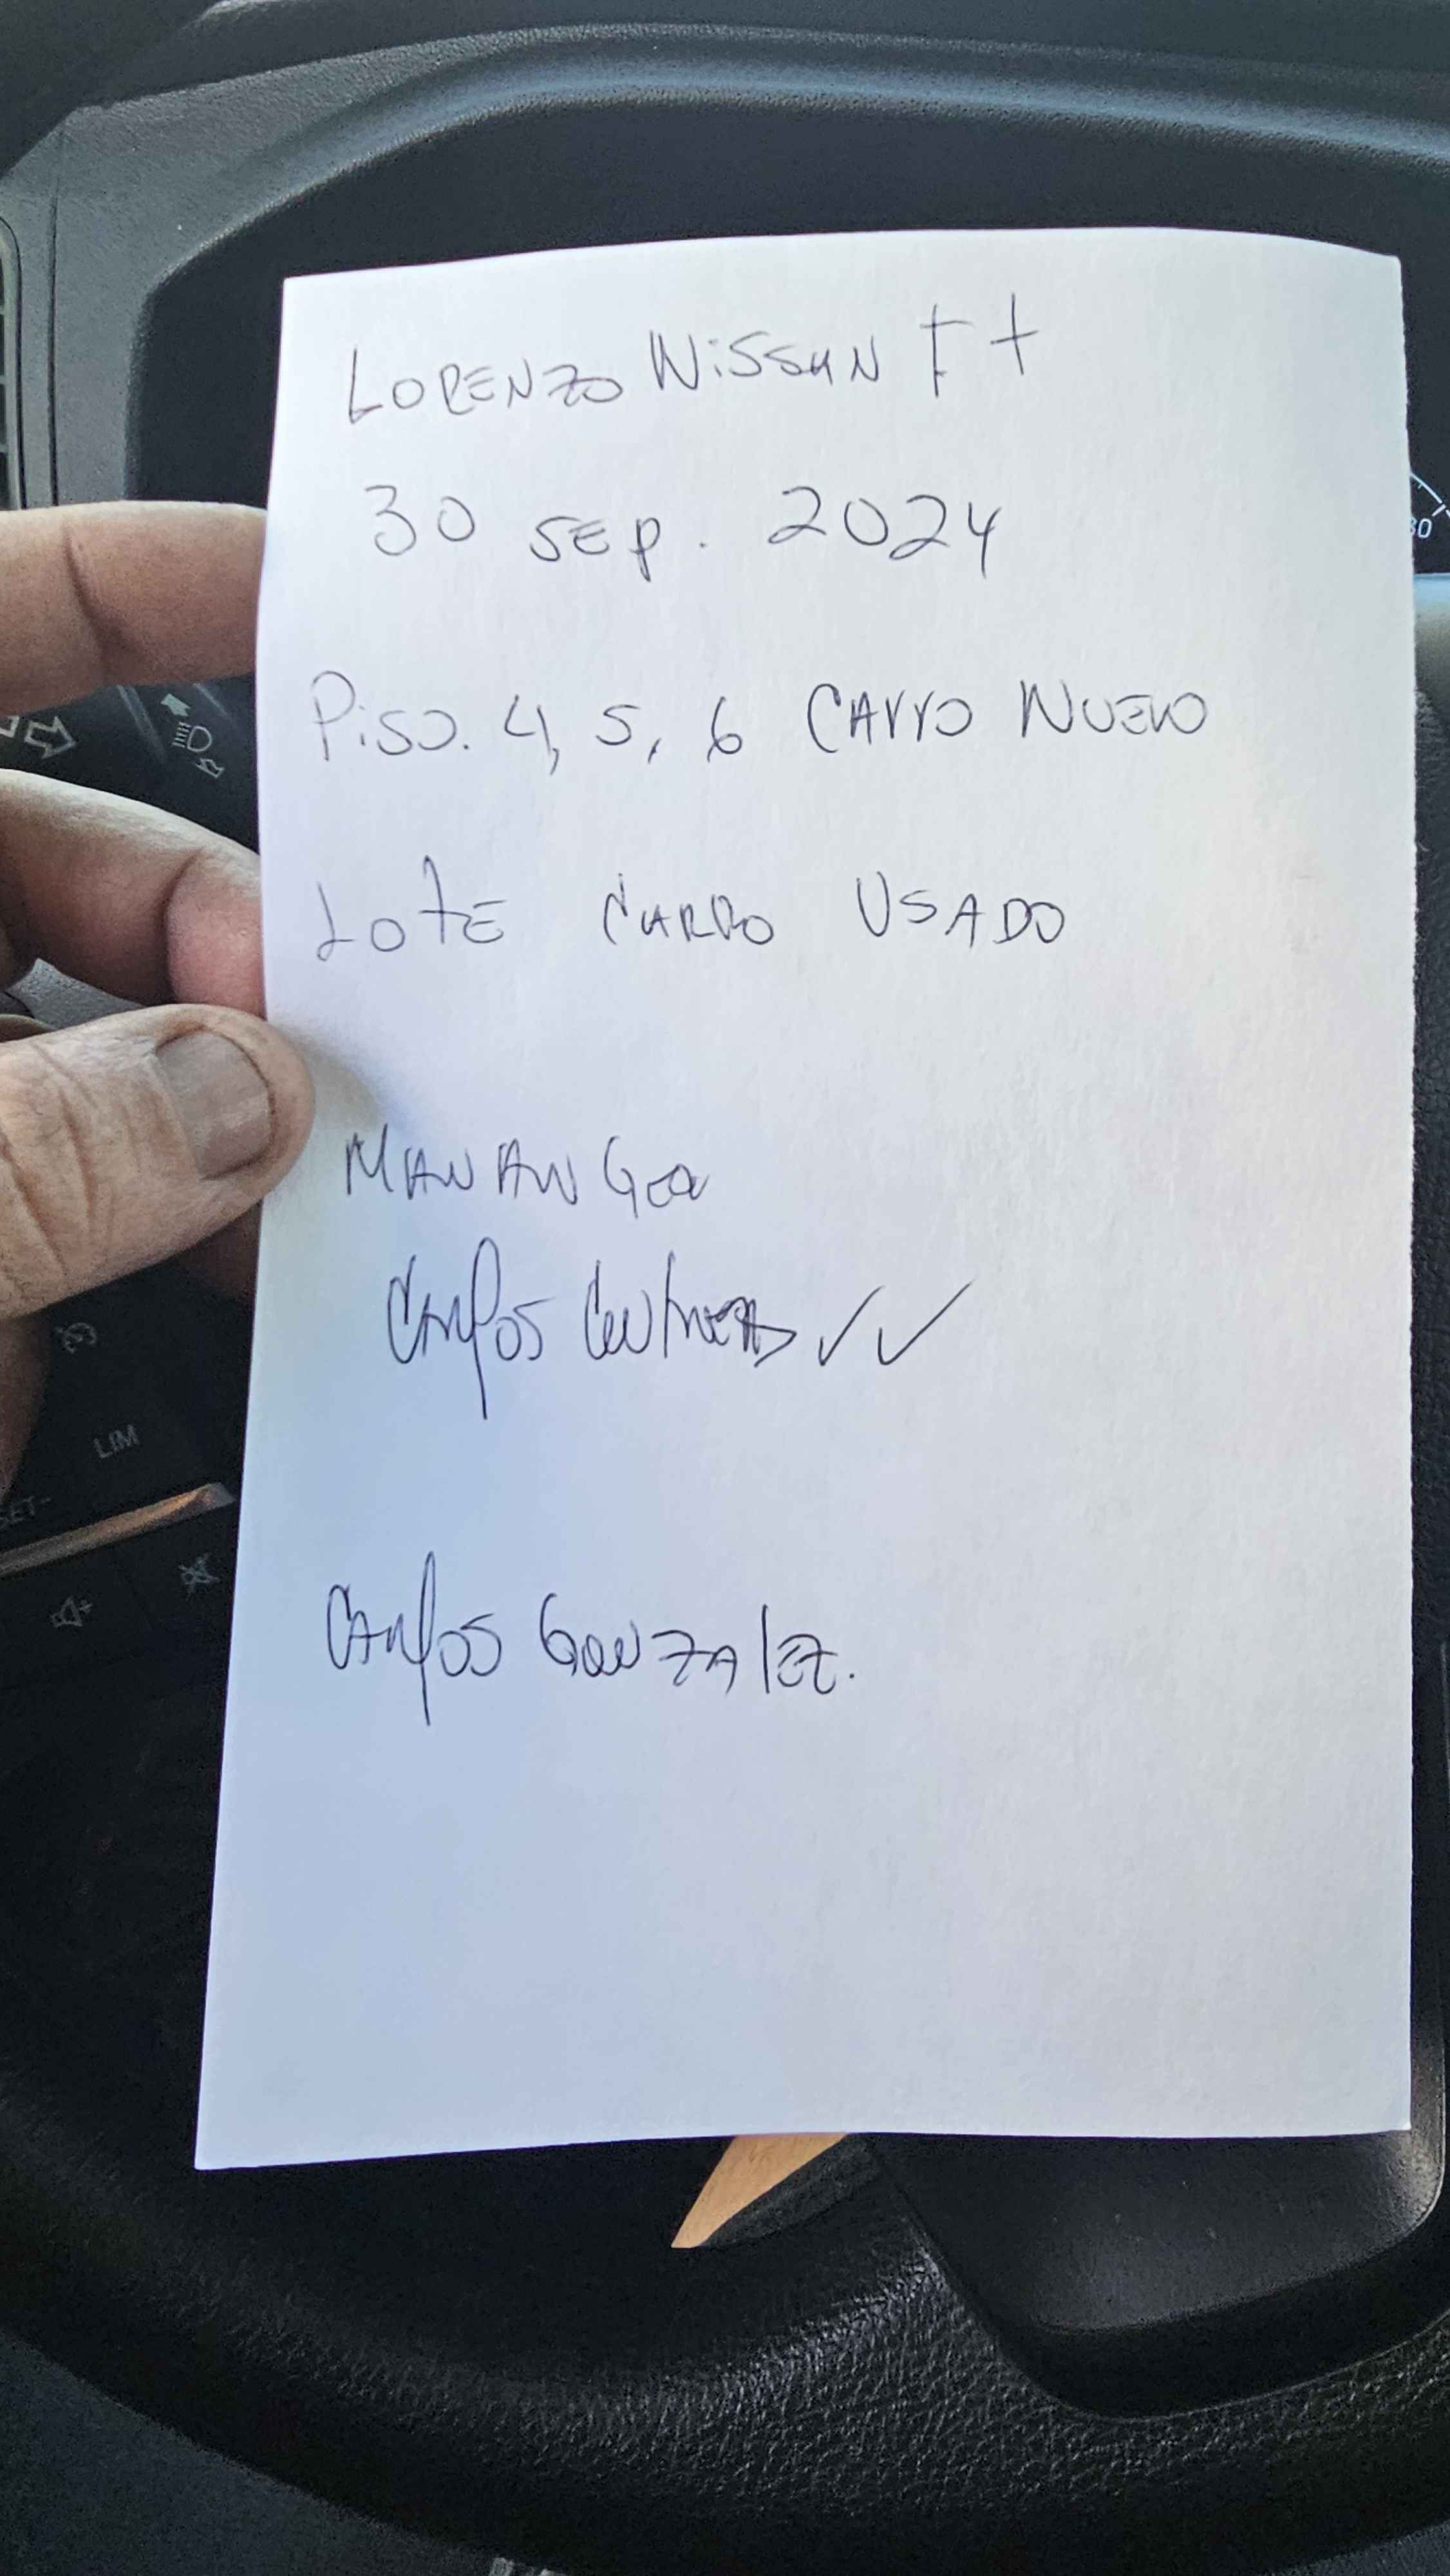 LORENZO NiSSAN
30 SEP. 2024
PiSO. 4, 5, 6 CArrO NUEVO
LOtE CARRO USADO
CARlOS ✓✓
CARlOS GONZAlEZ.
LIM
SET-
80